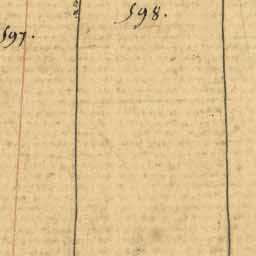 598.
597.